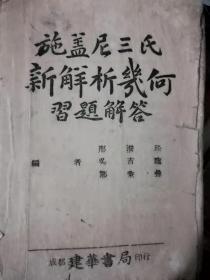 施盖尼三氏
新解析幾何
習題解答
編者
成都 建華書局 印行